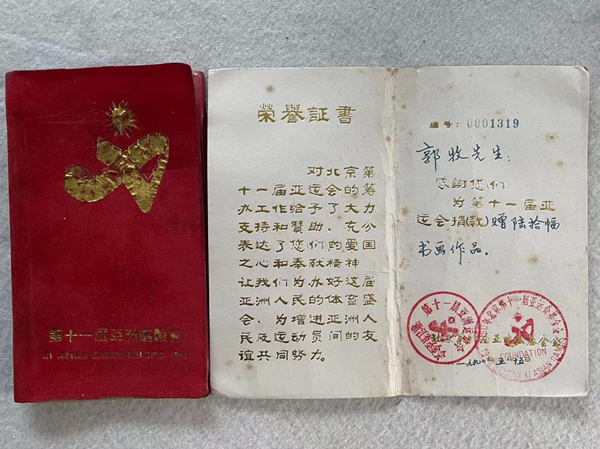 第十一届亚洲運動會
XI ASIAN GAMES BEIJING 1990
榮譽証書
对北京第
十一届亚运会的筹
办工作给予了大力
支持和赞助、充分
表达了您们的爱国
之心和奉献精神
让我们为办好这届
亚洲人民的体育盛
会、为增进亚洲人
民及运动员间的友
谊共同努力。
编号:0001319
郭牧先生:
感謝您们
为第十一届亚
运会捐(款)赠陆拾幅
书画作品。
第十一届亚洲运动会
FOUNDATION
XI ASIAN GAMES
基金会